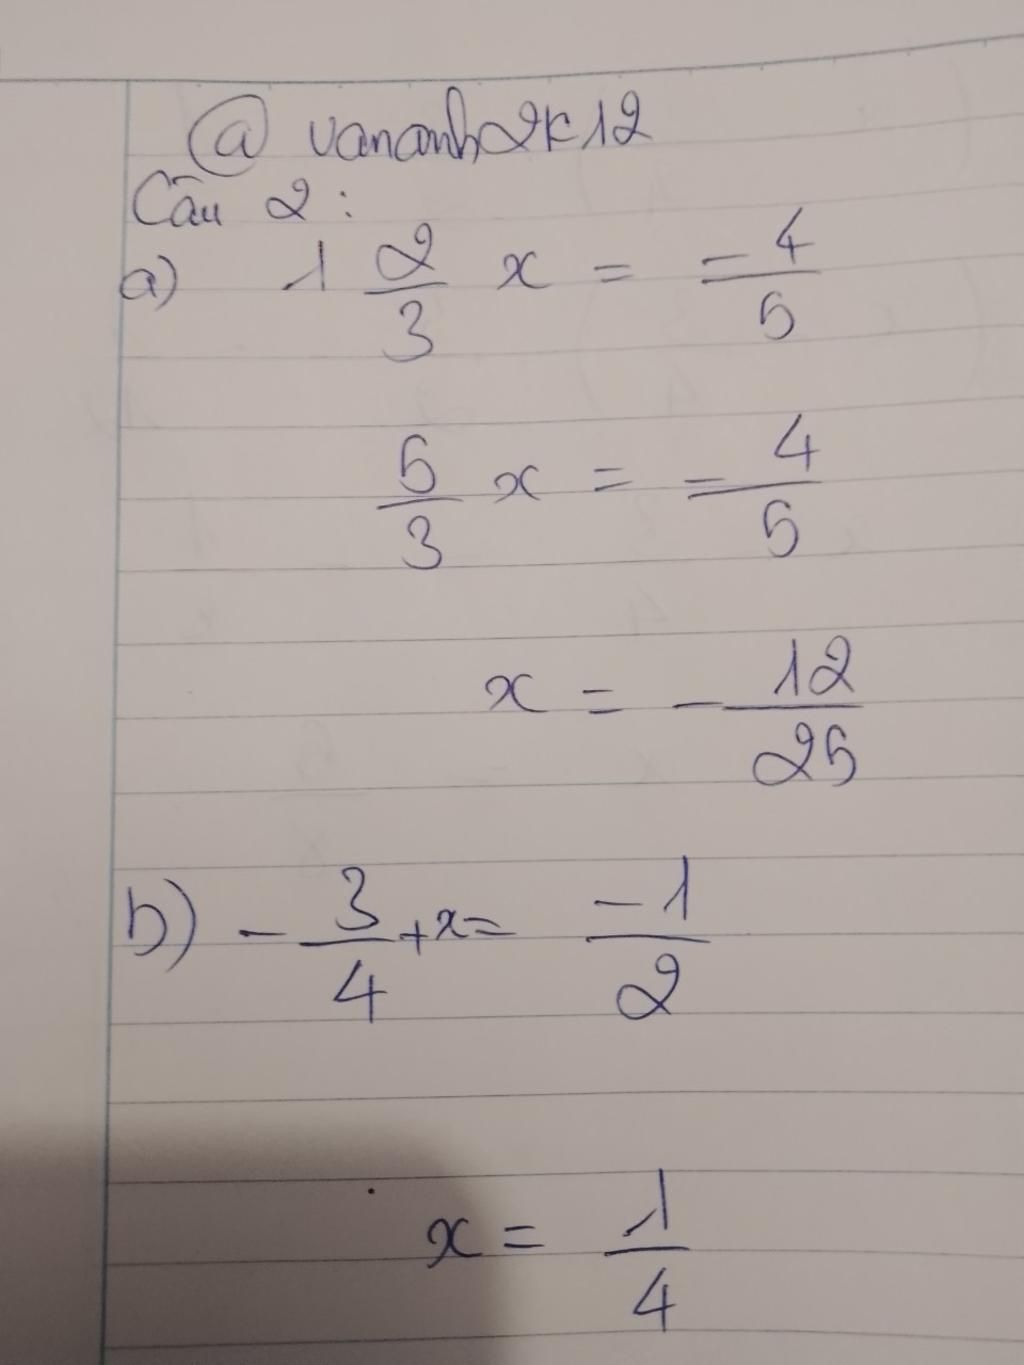 @ vananh2k12
Câu 2:
a) 1 2/3 x = -4/5
5/3 x = -4/5
x = -12/25
b) -3/4 + x = -1/2
x = 1/4